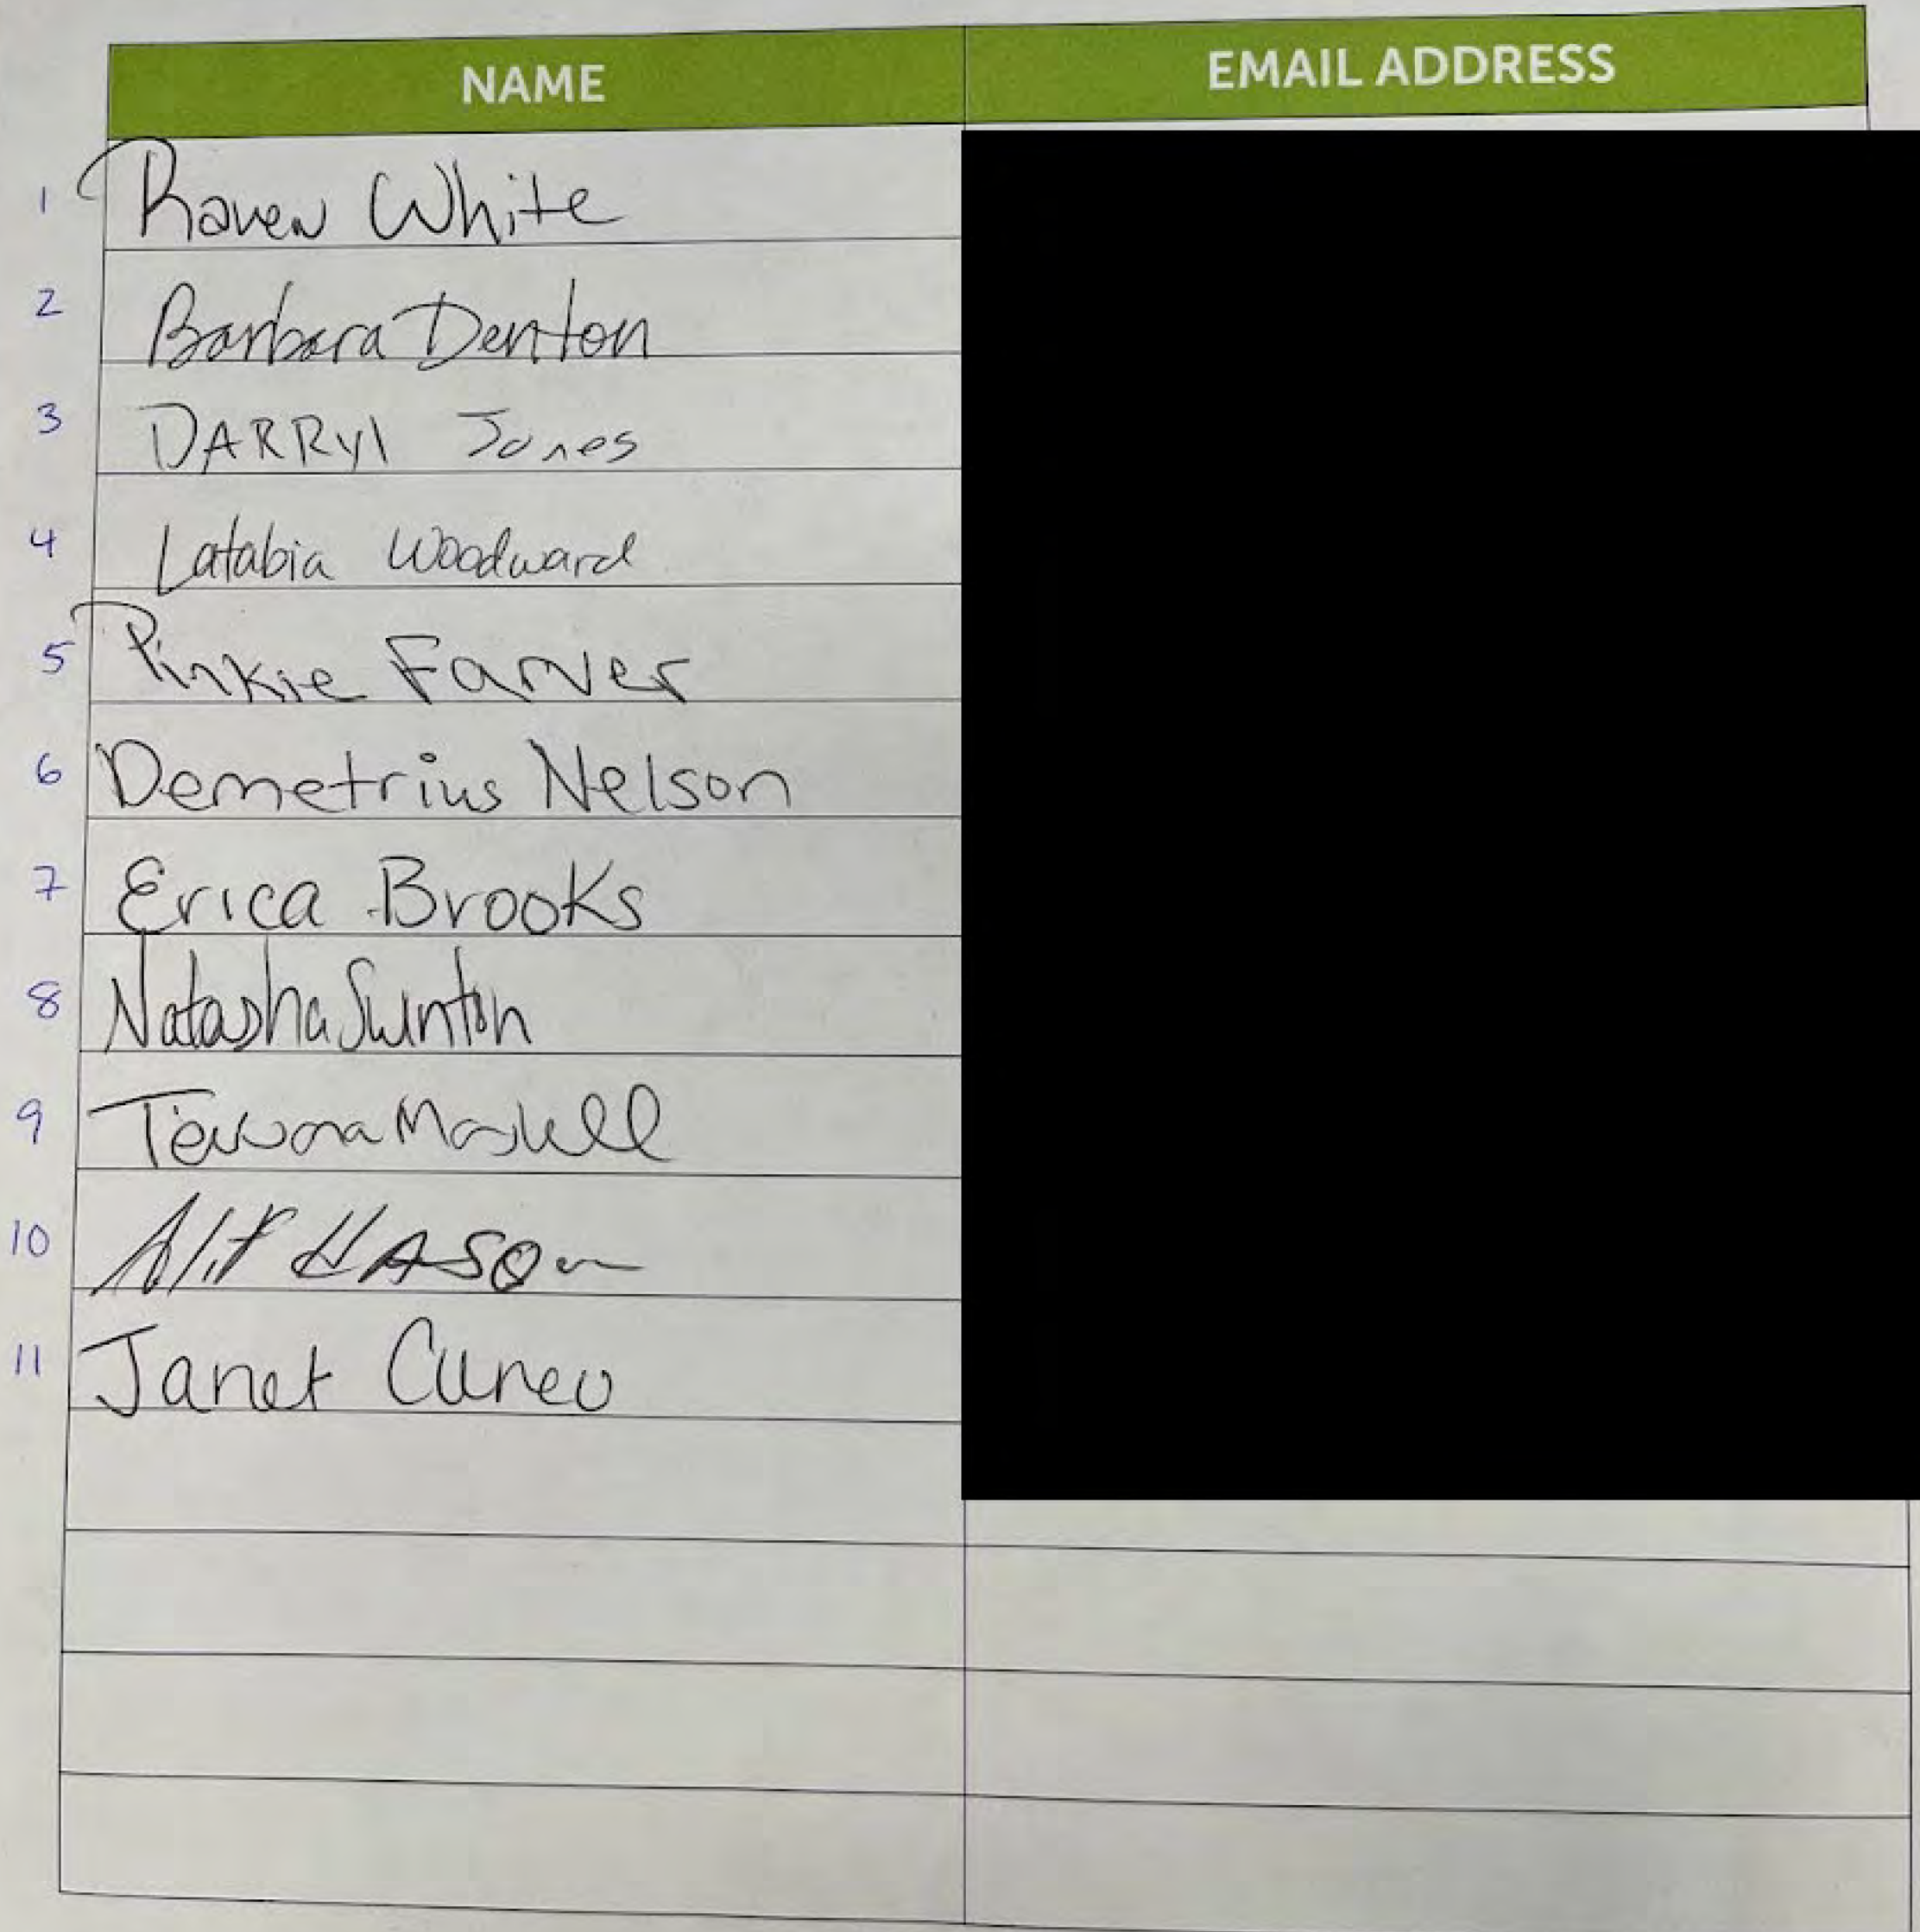 NAME EMAIL ADDRESS
1 Raven White
2 Barbara Denton
3 DARRYl Jones
4 Latabia Woodward
5 Pinkie Farver
6 Demetrius Nelson
7 Erica Brooks
8 Natasha Swinton
9
10 Alif HASAn
11 Janet Cuneo